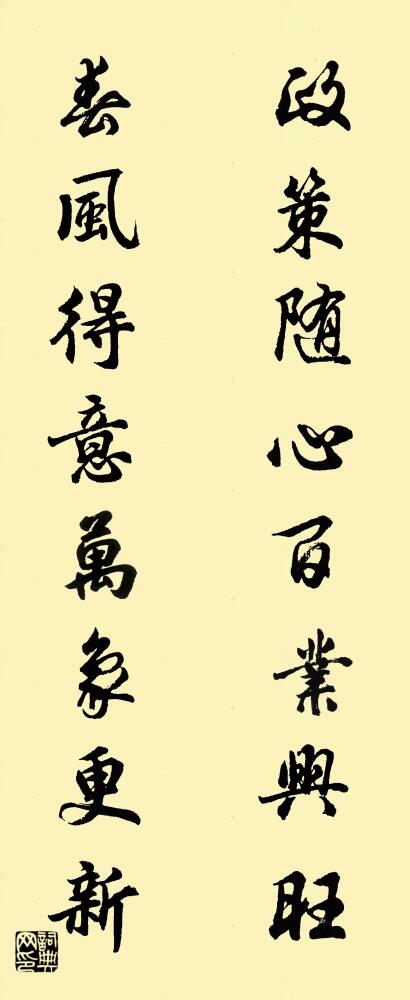 政策随心百業興旺
春風得意萬象更新
詞典网印